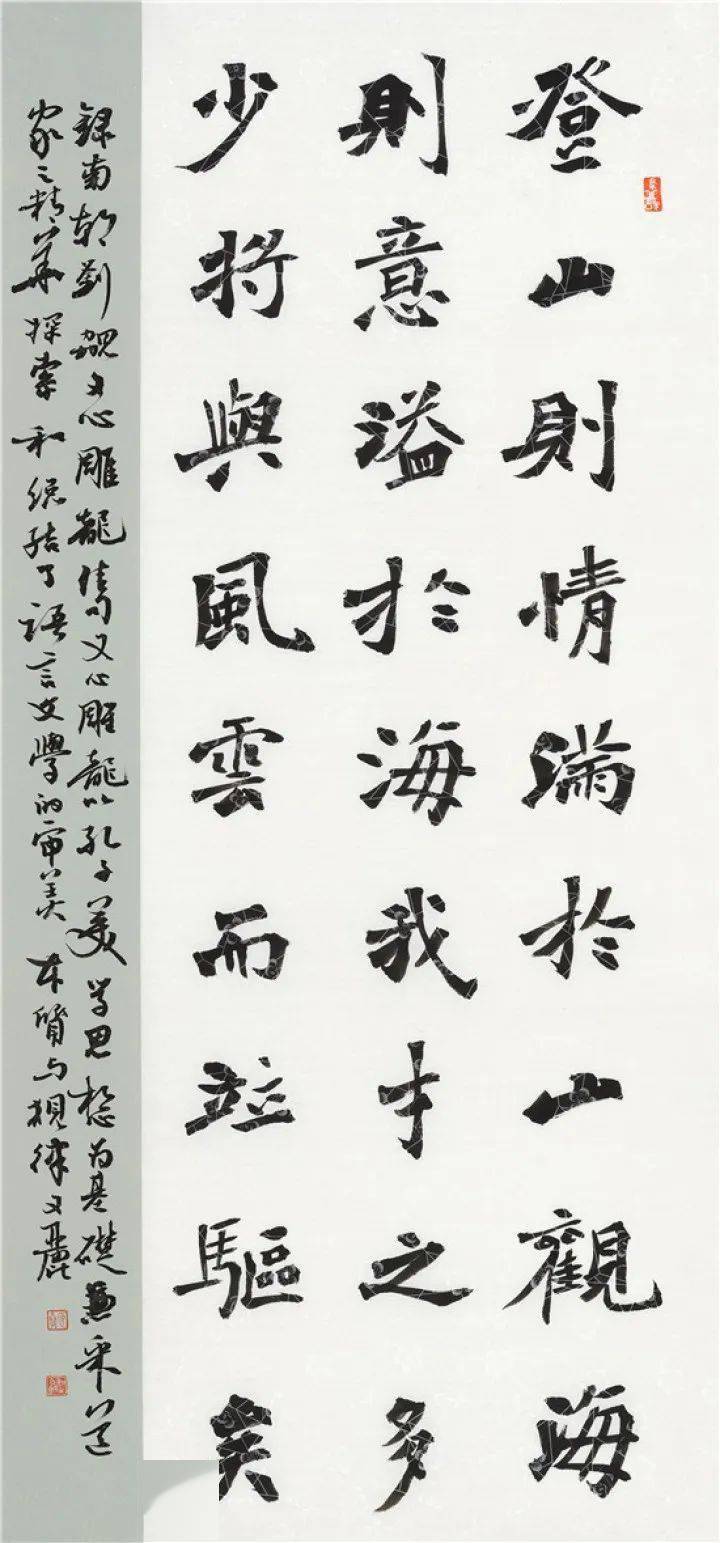 登山則情滿於山觀海
則意溢於海我才之多
少將與風雲而竝驅矣
錄南朝劉勰文心雕龍句文心雕龍以孔子美学思想为基礎兼采道
家之精華探索和總結了語言文學的審美本質与規律文麗